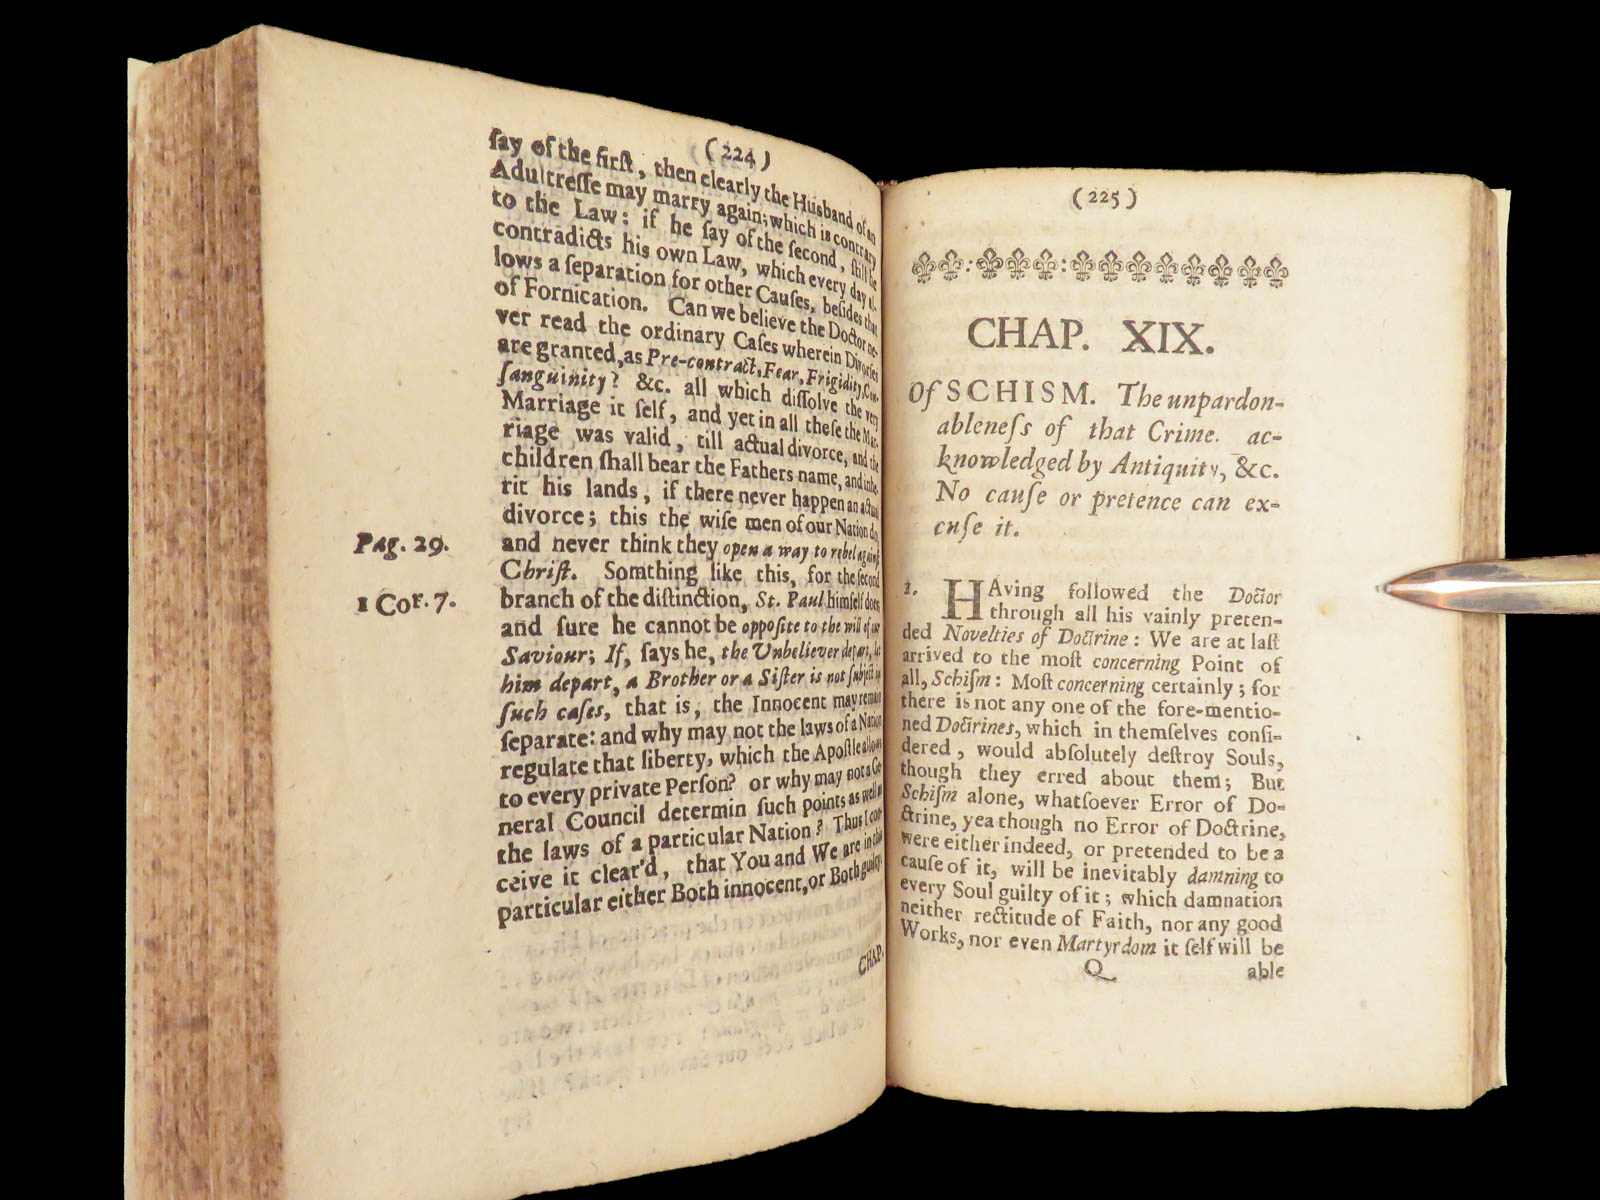 (224)
ſay of the firſt, then clearly the Husband of an
Adultreſſe may marry again; which is contrary
to the Law: if he ſay of the ſecond, ſtill he
contradicts his own Law, which every day al-
lows a ſeparation for other Cauſes, beſides that
of Fornication. Can we believe the Doctor ne-
ver read the ordinary Caſes wherein Divorſes
are granted, as Pre-contract, Fear, Frigidity, Con-
ſanguinity? &c. all which diſſolve the very
Marriage it ſelf, and yet in all theſe the Mar-
riage was valid, till actual divorce, and the
children ſhall bear the Fathers name, and inhe-
rit his lands, if there never happen an actual
divorce; this the wiſe men of our Nation do,
Pag. 29. and never think they open a way to rebel againſt
Chriſt. Somthing like this, for the ſecond
1 Cor. 7. branch of the diſtinction, St. Paul himſelf does
and ſure he cannot be oppoſite to the will of our
Saviour; If, ſays he, the Unbeliever depart, let
him depart, a Brother or a Siſter is not ſubject in
ſuch caſes, that is, the Innocent may remain
ſeparate: and why may not the laws of a Nation
regulate that liberty, which the Apoſtle allows
to every private Perſon? or why may not a Ge-
neral Council determin ſuch points as well as
the laws of a particular Nation? Thus I con-
ceive it clear'd, that You and We are in this
particular either Both innocent, or Both guilty.
CHAP.
(225)
CHAP. XIX.
Of SCHISM. The unpardon-
ableneſs of that Crime. ac-
knowledged by Antiquity, &c.
No cauſe or pretence can ex-
cuſe it.
1. HAving followed the Doctor
through all his vainly preten-
ded Novelties of Doctrine: We are at laſt
arrived to the moſt concerning Point of
all, Schiſm: Moſt concerning certainly; for
there is not any one of the fore-mentio-
ned Doctrines, which in themſelves conſi-
dered, would abſolutely deſtroy Souls,
though they erred about them; But
Schiſm alone, whatſoever Error of Do-
ctrine, yea though no Error of Doctrine,
were either indeed, or pretended to be a
cauſe of it, will be inevitably damning to
every Soul guilty of it; which damnation
neither rectitude of Faith, nor any good
Works, nor even Martyrdom it ſelf will be
Q able